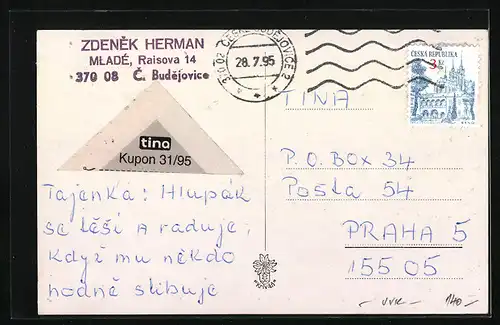 ZDENĚK HERMAN
MLADÉ, Raisova 14
370 08 Č. Budějovice
370 02 ČESKÉ BUDĚJOVICE 2
28.7.95
ČESKÁ REPUBLIKA
3 Kč
tina
Kupon 31/95
Tajenka: Hlupák
se těší a raduje,
když mu někdo
hodně slibuje
TINA
P.O. Box 34
Pošta 54
PRAHA 5
155 05
140,-